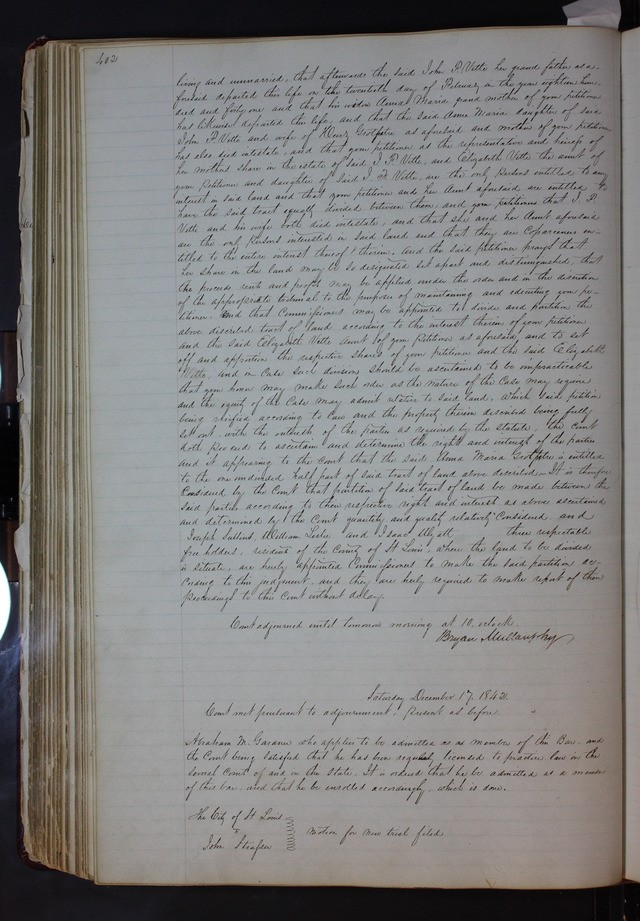 402
living and unmarried, that afterwards the said John P. Vette her grand father as a-
foresaid departed this life on the twentieth day of February in the year eighteen hun-
dred and forty one and that his widow Anna Maria grand mother of your petitioner
has likewise departed this life, and that the said Anna Maria daughter of said
John P. Vette and wife of Henry as aforesaid and mother of your petitioner
has also died intestate, and that your petitioner as the representative and heiress of
her mothers share in the estate of said J. P. Vette, and Elizabeth Vette the aunt of
your Petitioner and daughter of said J. P. Vette, are the only persons entitled to any
interest in said land and that your petitioner and her aunt aforesaid are entitled to
have the said tract equally divided between them, and your petitioner that J. P.
Vette and his wife both died intestate, and that she and her Aunt aforesaid
are the only persons interested in said land and that they are Coparceners en-
titled to the entire interest thereof & therein. And the said petitioner prays that
her share in the land may be so designated set apart and distinguished, that
the proceeds rents and profits may be applied under the order and in the discretion
of the appropriate tribunal to the purposes of maintaining and educating your pe-
titioner. And that Commissioners may be appointed to divide and partition the
above described tract of land according to the interest therein of your petitioner
and the said Elizabeth Vette Aunt of your Petitioner as aforesaid, and to set
off and apportion the respective shares of your petitioner and the said Elizabeth
Vette, and in case such division should be ascertained to be impracticable
that your honor may make such order as the nature of the Case may require
and the equity of the Case may admit relative to said land. Which said petition
being verified according to law and the property therein described being fully
set out, with the interests of the parties as required by the statute, the Court
doth proceed to ascertain and determine the rights and interests of the parties
and it appearing to the Court that the said Anna Maria is entitled
to the one undivided half part of said tract of land above described. It is therefore
Considered by the Court that partition of said tract of land be made between the
said parties according to their respective rights and interest as above ascertained
and determined by the Court quantity and quality relatively Considered. and
Joseph William and Isaac three respectable
free holders, residents of the County of St Louis, where the land to be divided
is situate, are hereby appointed Commissioners to make the said partition ac-
cording to this judgment, and they are hereby required to make report of their
proceedings to this Court without delay.
Court adjourned until tomorrow morning at 10. oclock.
Bryan Mullanphy
Saturday December 17. 1842.
Court met pursuant to adjournment. Present as before
Abraham M. Gardner who applies to be admitted as a member of this Bar. and
the Court being satisfied that he has been regularly licensed to practice law in the
several Courts of and in the State. It is ordered that he be admitted as a member
of this bar, and that he be enrolled accordingly. which is done.
The City of St Louis
John
Motion for New trial filed